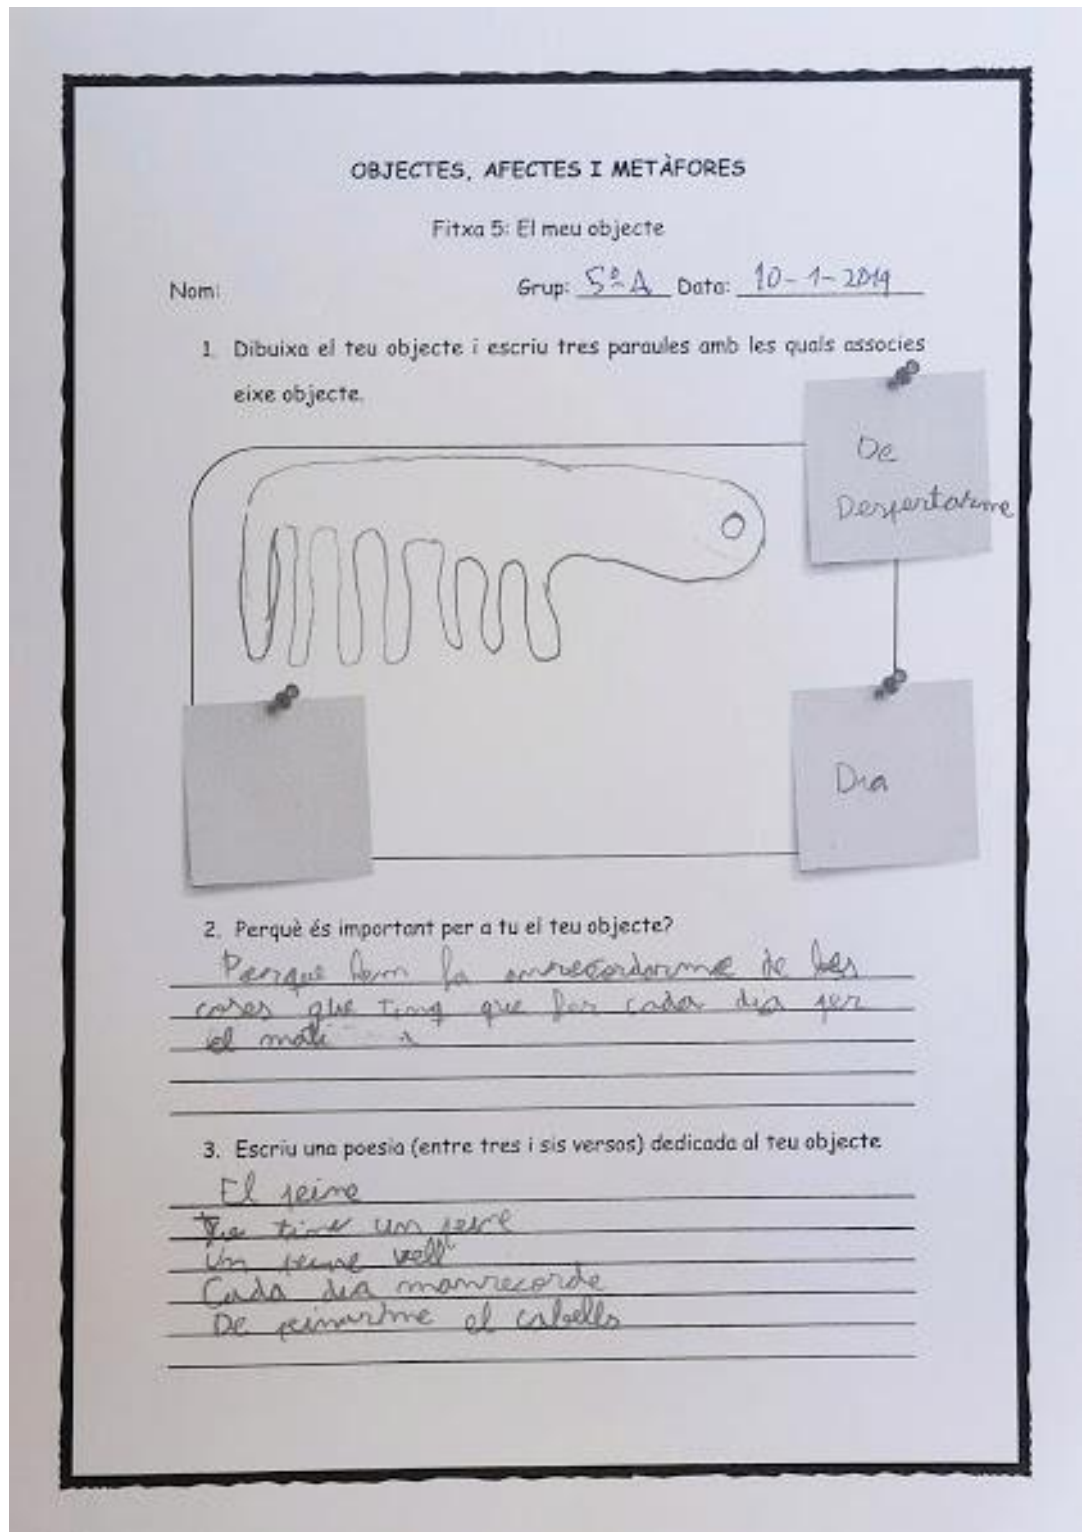 OBJECTES, AFECTES I METÀFORES
Fitxa 5: El meu objecte
Nom: Grup: 5º A Data: 10-1-2019
1. Dibuixa el teu objecte i escriu tres paraules amb les quals associes
eixe objecte.
De
Despertarme
Dia
2. Perquè és important per a tu el teu objecte?
Perque hem fa enrecordarme de les
coses que ting que fer cada dia per
el mati
3. Escriu una poesia (entre tres i sis versos) dedicada al teu objecte
El peine
tinc un peine
Un peine vell
Cada dia manrecorde
De peinarme el cabells